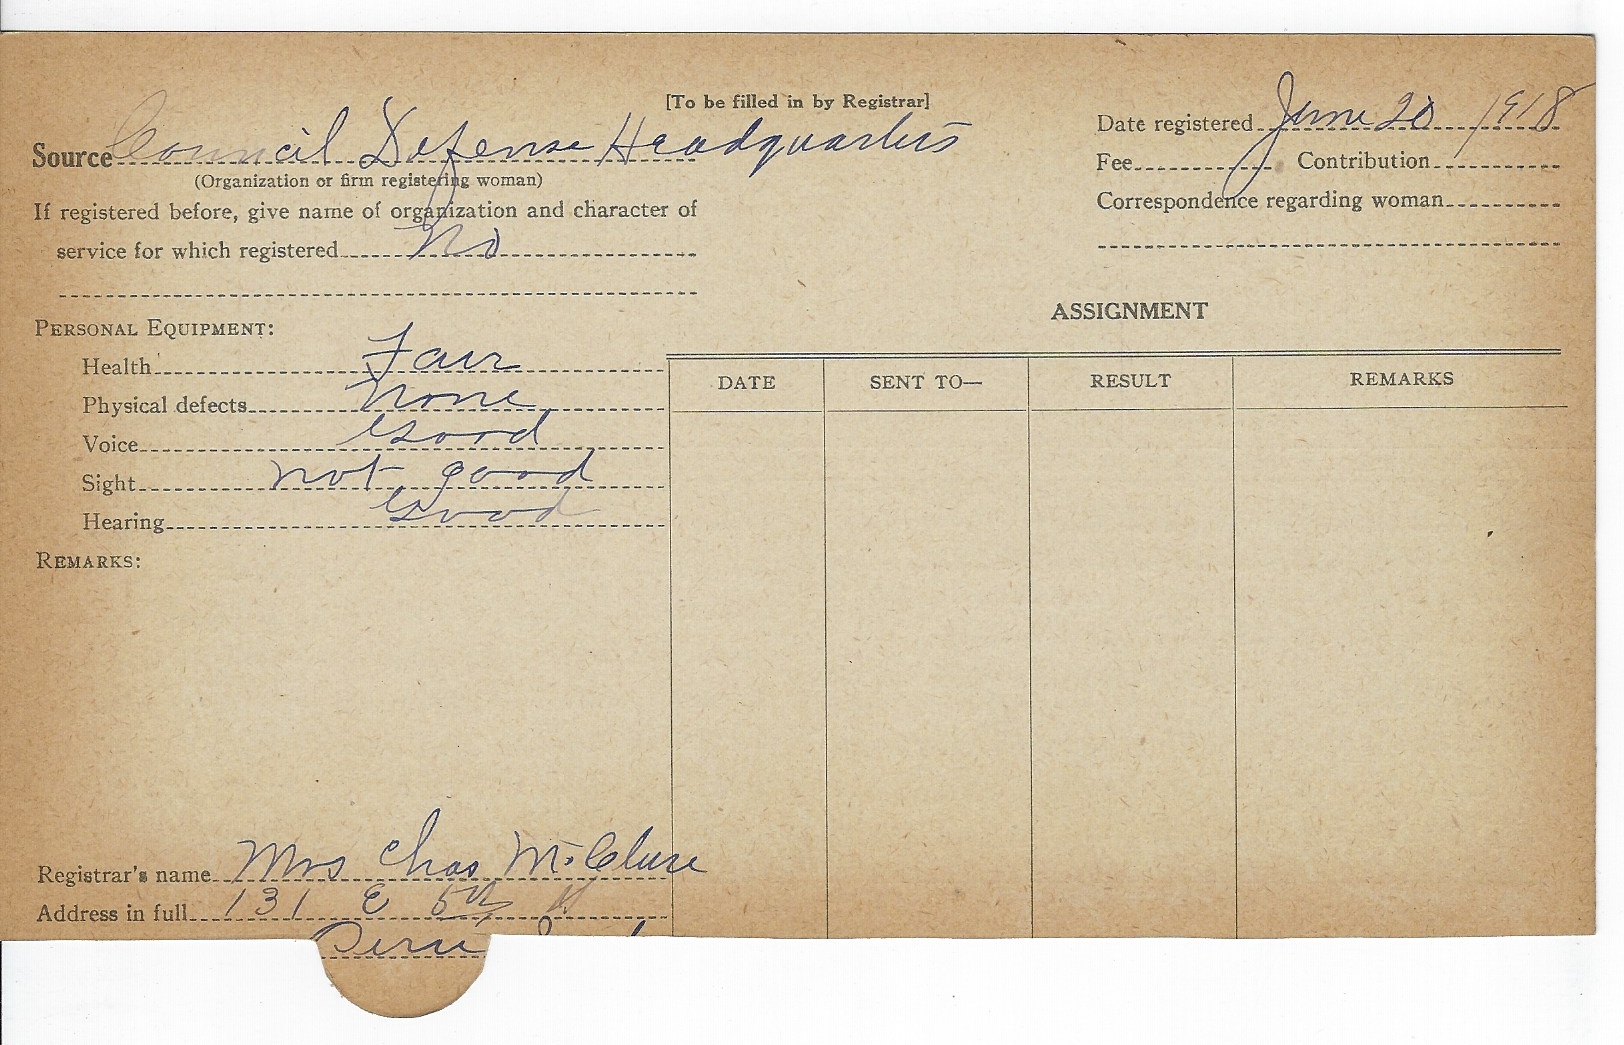 [To be filled in by Registrar]
Source Council Defense Headquarters
(Organization or firm registering woman)
If registered before, give name of organization and character of
service for which registered No
Date registered June 20 1918
Fee Contribution
Correspondence regarding woman
PERSONAL EQUIPMENT:
Health Fair
Physical defects None
Voice Good
Sight not good
Hearing Good
REMARKS:
ASSIGNMENT
DATE SENT TO— RESULT REMARKS
Registrar's name Mrs Chas McClure
Address in full 131 E 5th St
Peru